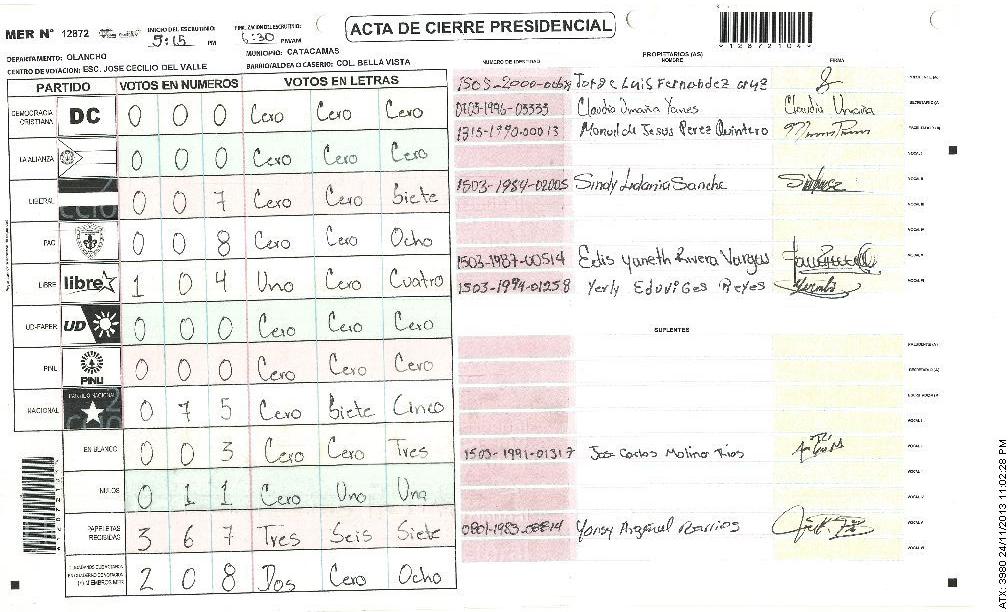 MER N° 12872 INICIO DEL ESCRUTINIO: 5:15 PM 6:30 PM/AM
ACTA DE CIERRE PRESIDENCIAL
DEPARTAMENTO: OLANCHO MUNICIPIO: CATACAMAS
CENTRO DE VOTACION: ESC. JOSE CECILIO DEL VALLE BARRIO/ALDEA O CASERIO: COL. BELLA VISTA
PARTIDO VOTOS EN NUMEROS VOTOS EN LETRAS
DEMOCRACIA CRISTIANA DC 0 0 0 Cero Cero Cero
LA ALIANZA 0 0 0 Cero Cero Cero
LIBERAL 0 0 7 Cero Cero Siete
PAC 0 0 8 Cero Cero Ocho
LIBRE libre 1 0 4 Uno Cero Cuatro
UD-FAPER UD 0 0 0 Cero Cero Cero
PINU PINU 0 0 0 Cero Cero Cero
NACIONAL PARTIDO NACIONAL 0 7 5 Cero Siete Cinco
EN BLANCO 0 0 3 Cero Cero Tres
NULOS 0 1 1 Cero Uno Uno
PAPELETAS RECIBIDAS 3 6 7 Tres Seis Siete
2 0 8 Dos Cero Ocho
PROPIETARIOS (AS)
NUMERO DE IDENTIDAD NOMBRE FIRMA
Jorge Luis Fernandez cruz
Claudia Umaña Yanes Claudia Umaña
1515-1990-00013 Manuel de Jesus Perez Quintero
1503-1984-02005 Sindy Lidania Sanche
1503-1987-00514 Edis Yaneth Rivera Vargas
1503-1994-01258 Yerly Eduviges Reyes
SUPLENTES
1503-1991-01317 Jose Carlos Molina Rios
Yonsy Argeñal Barrios
ATX: 3980 24/11/2013 11:02:28 PM